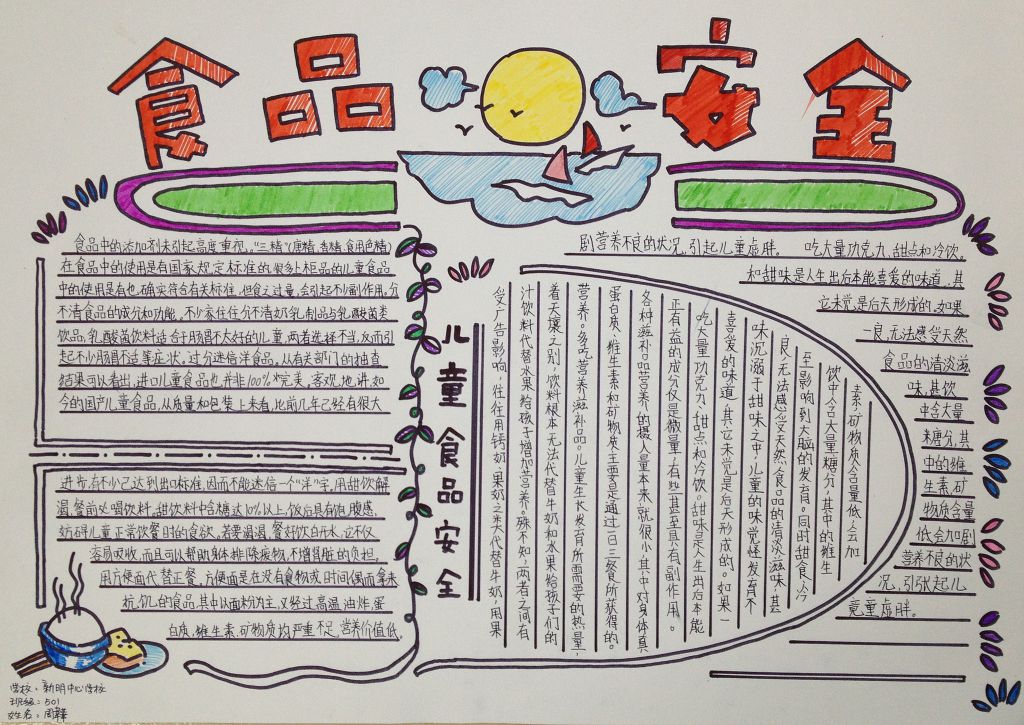 食品安全
食品中的添加剂未引起高度重视。“三精”(糖精、香精、食用色精)
在食品中的使用是有国家规定标准的,很多上柜品的儿童食品
中的使用是有也确实符合有关标准,但食之过量,会引起不少副作用。分
不清食品的成分和功能,不少家住往分不清奶乳制品与乳酸菌类
饮品,乳酸菌饮料适合于肠胃不太好的儿童,两者选择不当,反而引
起不少肠胃不适等症状。过分迷信洋食品,从有关部门的抽查
结果可以看出,进口儿童食品也并非100%完美,客观地讲,如
今的国产儿童食品,从质量和包装上来看,比前几年已经有很大
进步,有不少已达到出口标准,因而不能迷信一个“洋”字。用甜饮解
渴,餐前必喝饮料,甜饮料中含糖达10%以上,饭后具有饱腹感,
妨碍儿童正常饮餐时的食欲,若要渴渴,餐好饮白开水,它不仅
容易吸收,而且可以帮助身体排除废物,不增肾脏的负担。
用方便面代替正餐,方便面是在没有食物或时间偶而拿来
抗饥的食品,其中以面粉为主,又经过高温油炸,蛋
白质,维生素,矿物质均严重不足,营养价值低,
儿童食品安全
受广告影响,往往用钙奶、果奶之类代替牛奶,用果
汁饮料代替水果给孩子增加营养。殊不知,两者之间有
着天壤之别,饮料根本无法代替牛奶和水果给孩子们的
营养。多吃营养滋补品。儿童生长发育所需要的热量,
蛋白质、维生素和矿物质主要是通过一日三餐所获得的。
各种滋补品营养的摄入量本来就很小,其中对身体真
正有益的成分仅是微量,有些甚至具有副作用。
吃大量功克力、甜点和冷饮。甜味是人生出后本能
喜爱的味道,其它味觉是后天形成的。如果一
味沉溺于甜味之中,儿童的味觉怪发育不
良,无法感受天然食品的清淡滋味,甚
至影响到大脑的发育。同时甜食、冷
饮中含大量糖分,其中的维生
素,矿物质含量低,会加
剧营养不良的状况,引起儿童虚胖。 吃大量功克力、甜点和冷饮。
和甜味是人生出后本能喜爱的味道,其
它味觉是后天形成的。如果
一良,无法感受天然
食品的清淡滋
味,甚饮
中含大量
来糖分,其
中的维
生素,矿
物质含量
低会加剧
营养不良的状
况,引张起儿
竟童虚胖。
学校:新明中心学校
班级:501
姓名:周